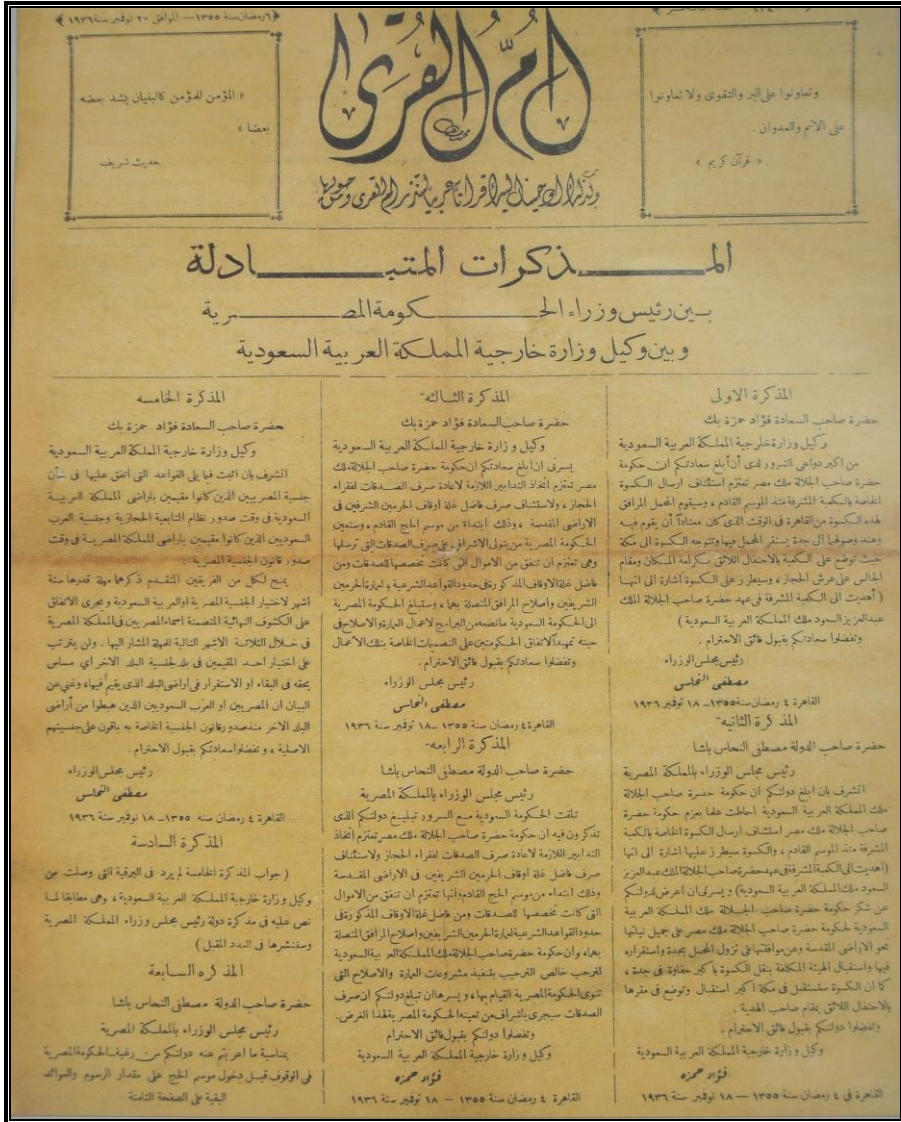 ﴿ ٦ رمضان سنة ١٣٥٥ — الموافق ٢٠ نوفمبر سنة ١٩٣٦ ﴾
أم القرى
وتعاونوا على البر والتقوى ولا تعاونوا
على الاثم والعدوان .
« قرآن كريم »
« المؤمن للمؤمن كالبنيان يشد بعضه
بعضا »
حديث شريف
وكذلك اوحينا اليك قرآنا عربيا لتنذر ام القرى ومن حولها
المـــذكرات المتبـــادلة
بــين رئيس وزراء الحـــكومة المصـــرية
وبين وكيل وزارة خارجية المملكة العربية السعودية
المذكرة الاولى
حضرة صاحب السعادة فؤاد حمزة بك
وكيل وزارة خارجية المملكة العربية السعودية
من اكبر دواعى السرور لدى أن أبلغ سعادتكم ان حكومة
حضرة صاحب الجلالة ملك مصر تعتزم استئناف ارسال الكسوة
الخاصة بالكعبة المشرفة منذ الموسم القادم ، وسيقوم المحمل المرافق
لهذه الكسوة من القاهرة فى الوقت الذى كان معتاداً أن يقوم فيه
وعند وصولها الى جدة يستقر المحمل فيها وتتوجه الكسوة الى مكة
حيث توضع على الكعبة بالاحتفال اللائق بكرامة المكان ومقام
الجالس على عرش الحجاز ، وسيطرز على الكسوة اشارة الى انها
( أهديت الى الكعبة المشرفة فى عهد حضرة صاحب الجلالة الملك
عبدالعزيز السعود ملك المملكة العربية السعودية )
وتفضلوا سعادتكم بقبول فائق الاحترام .
رئيس مجلس الوزراء
مصطفى النحاس
القاهرة ٤ رمضان سنة ١٣٥٥ـ ١٨ نوفمبر ١٩٣٦
المذكرة الثانية
حضرة صاحب الدولة مصطفى النحاس باشا
رئيس مجلس الوزراء بالمملكة المصرية
اتشرف بان ابلغ دولتكم ان حكومة حضرة صاحب الجلالة
ملك المملكة العربية السعودية احاطت علما بعزم حكومة حضرة
صاحب الجلالة ملك مصر استئناف ارسال الكسوة الخاصة بالكعبة
المشرفة منذ الموسم القادم ، والكسوة سيطرز عليها اشارة الى انها
(أهديت الى الكعبة المشرفة فى عهد حضرة صاحب الجلالة الملك عبدالعزيز
السعود ملك المملكة العربية السعودية) ويسرنى ان اعرض لدولتكم
عن شكر حكومة حضرة صاحب الجلالة ملك المملكة العربية
السعودية لحكومة حضرة صاحب الجلالة ملك مصر على جميل نياتها
نحو الاراضى المقدسة وعن موافقتها على نزول المحمل بجدة واستقراره
فيها واستقبال الهيئة المكلفة بنقل الكسوة باكبر حفاوة فى جدة ،
كما ان الكسوة ستستقبل فى مكة اكبر استقبال وتوضع فى مقرها
بالاحتفال اللائق بمقام صاحب الهدية .
وتفضلوا دولتكم بقبول فائق الاحترام .
وكيل وزارة خارجية المملكة العربية السعودية
فؤاد حمزه
القاهرة فى ٤ رمضان سنة ١٣٥٥ — ١٨ نوفمبر سنة ١٩٣٦
المذكرة الثالثة
حضرة صاحب السعادة فؤاد حمزة بك
وكيل وزارة خارجية المملكة العربية السعودية
يسرنى ان أبلغ سعادتكم ان حكومة حضرة صاحب الجلالة ملك
مصر تعتزم اتخاذ التدابير اللازمة لاعادة صرف الصدقات لفقراء
الحجاز ، ولاستئناف صرف فاضل غلة اوقاف الحرمين الشرفين فى
الاراضى المقدسة ، وذلك ابتداء من موسم الحج القادم ، وستعين
الحكومة المصرية من يتولى الاشراف على صرف الصدقات التى ترسلها
وهى تعتزم ان تنفق من الاموال التى كانت تخصصها للصدقات ومن
فاضل غلة الاوقاف المذكورة فى حدود القواعد الشرعية ، لعمارة الحرمين
الشريفين واصلاح المرافق المتصلة بهما ، وستبلغ الحكومة المصرية
الى الحكومة السعودية ماتضعه من البرامج لاعمال العمارة والاصلاح فى
حينه تمهيداً لاتفاق الحكومتين على التصميمات الخاصة بتلك الأعمال
وتفضلوا سعادتكم بقبول فائق الاحترام .
رئيس مجلس الوزراء
مصطفى النحاس
القاهرة ٤ رمضان سنة ١٣٥٥ ـ ١٨ نوفمبر سنة ١٩٣٦
المذكرة الرابعه
حضرة صاحب الدولة مصطفى النحاس باشا
رئيس مجلس الوزراء بالمملكة المصرية
تلقت الحكومة السعودية مع السرور تبليغ دولتكم الذى
تذكرون فيه ان حكومة حضرة صاحب الجلالة ملك مصر تعتزم اتخاذ
التدابير اللازمة لاعادة صرف الصدقات لفقراء الحجاز ولاستئناف
صرف فاضل غلة اوقاف الحرمين الشريفين فى الاراضى المقدسة
وذلك ابتداء من موسم الحج القادم وانها تعتزم ان تنفق من الاموال
التى كانت تخصصها للصدقات ومن فاضل غلة الاوقاف المذكورة فى
حدود القواعد الشرعية لعمارة الحرمين الشريفين واصلاح المرافق المتصلة
بهما ، وان حكومة حضرة صاحب الجلالة ملك المملكة العربية السعودية
لترحب خالص الترحيب بتنفيذ مشروعات العمارة والاصلاح التى
تنوى الحكومة المصرية القيام بها ، ويسرها ان تبلغ دولتكم ان صرف
الصدقات سيجرى باشراف من تعينه الحكومة المصرية لهذا الغرض .
وتفضلوا دولتكم بقبول فائق الاحترام
وكيل وزارة خارجية المملكة العربية السعودية
فؤاد حمزه
القاهرة ٤ رمضان سنة ١٣٥٥ — ١٨ نوفمبر سنة ١٩٣٦
المذكرة الخامسه
حضرة صاحب السعادة فؤاد حمزة بك
وكيل وزارة خارجية المملكة العربية السعودية
اتشرف بان اثبت فيما يلى القواعد التى اتفق عليها فى شأن
جنسية المصريين الذين كانوا مقيمين باراضى المملكة العربية
السعودية فى وقت صدور نظام التابعية الحجازية وجنسية العرب
السعوديين الذين كانوا مقيمين باراضى المملكة المصرية فى وقت
صدور قانون الجنسية المصرية :
يمنح لكل من الفريقين المتقدم ذكرهما مهلة قدرها ستة
اشهر لاختيار الجنسية المصرية او العربية السعودية ويجرى الاتفاق
على الكشوف النهائية المتضمنة اسماء المصريين فى المملكة المصرية
فى خلال الثلاثة الاشهر التالية للمهلة المشار اليها . ولن يترتب
على اختيار احد المقيمين فى بلد لجنسية البلد الاخر اي مساس
بحقه فى البقاء او الاستقرار فى اراضى البلد الذى يقيم فيها ، وغنى عن
البيان ان المصريين او العرب السعوديين الذين هبطوا من أراضى
البلد الاخر منذ صدور قانون الجنسية الخاصة به باقون على جنسيتهم
الاصلية ، وتفضلوا سعادتكم بقبول الاحترام .
رئيس مجلس الوزراء
مصطفى النحاس
القاهرة ٤ رمضان سنه ١٣٥٥ ـ ١٨ نوفمبر سنة ١٩٣٦
المذكرة السادسة
( جواب المذكرة الخامسة لم يرد فى البرقية التى وصلت من
وكيل وزارة خارجية المملكة العربية السعودية ، وهى مطابقا لما
نص عليه فى مذكرة دولة رئيس مجلس وزراء المملكة المصرية
وسننشرها فى العدد المقبل )
المذكرة السابعة
حضرة صاحب الدولة مصطفى النحاس باشا
رئيس مجلس الوزراء بالمملكة المصرية
بمناسبة ما اعربتم عنه دولتكم من رغبة الحكومة المصرية
فى الوقوف قبل دخول موسم الحج على مقدار الرسوم والعوائد
البقية على الصفحة الثامنة